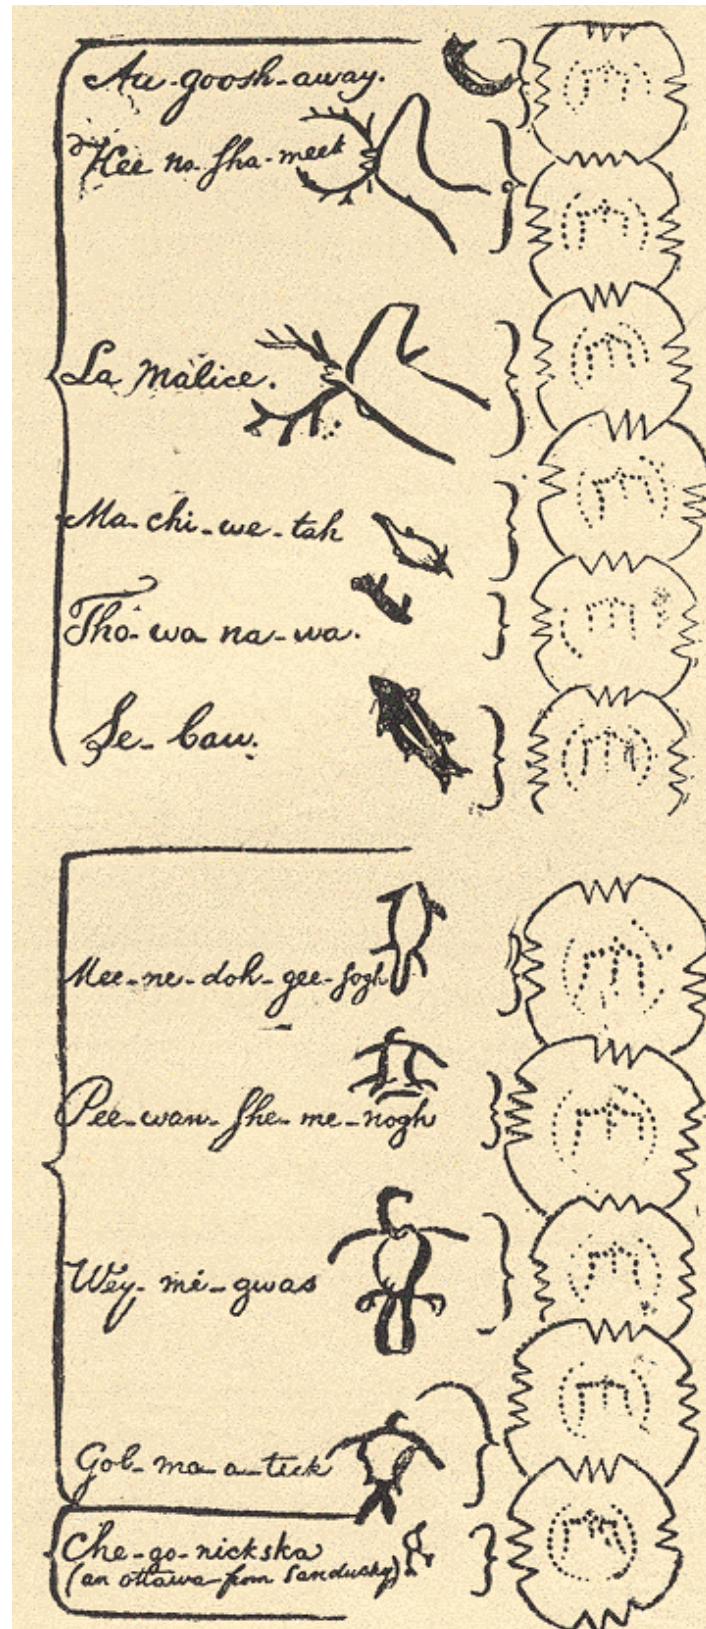 Au-goosh-away.
Kee no-sha-meek
La Malice.
Ma-chi-we-tah
Tho-wa na-wa.
Se-baw.
Mee-ne-doh-gee-sogh
Pee-wan-she-me-nogh
Wey-me-gwas
Gob-ma-a-tick
Che-go-nickska
(an ottawa from Sandusky)